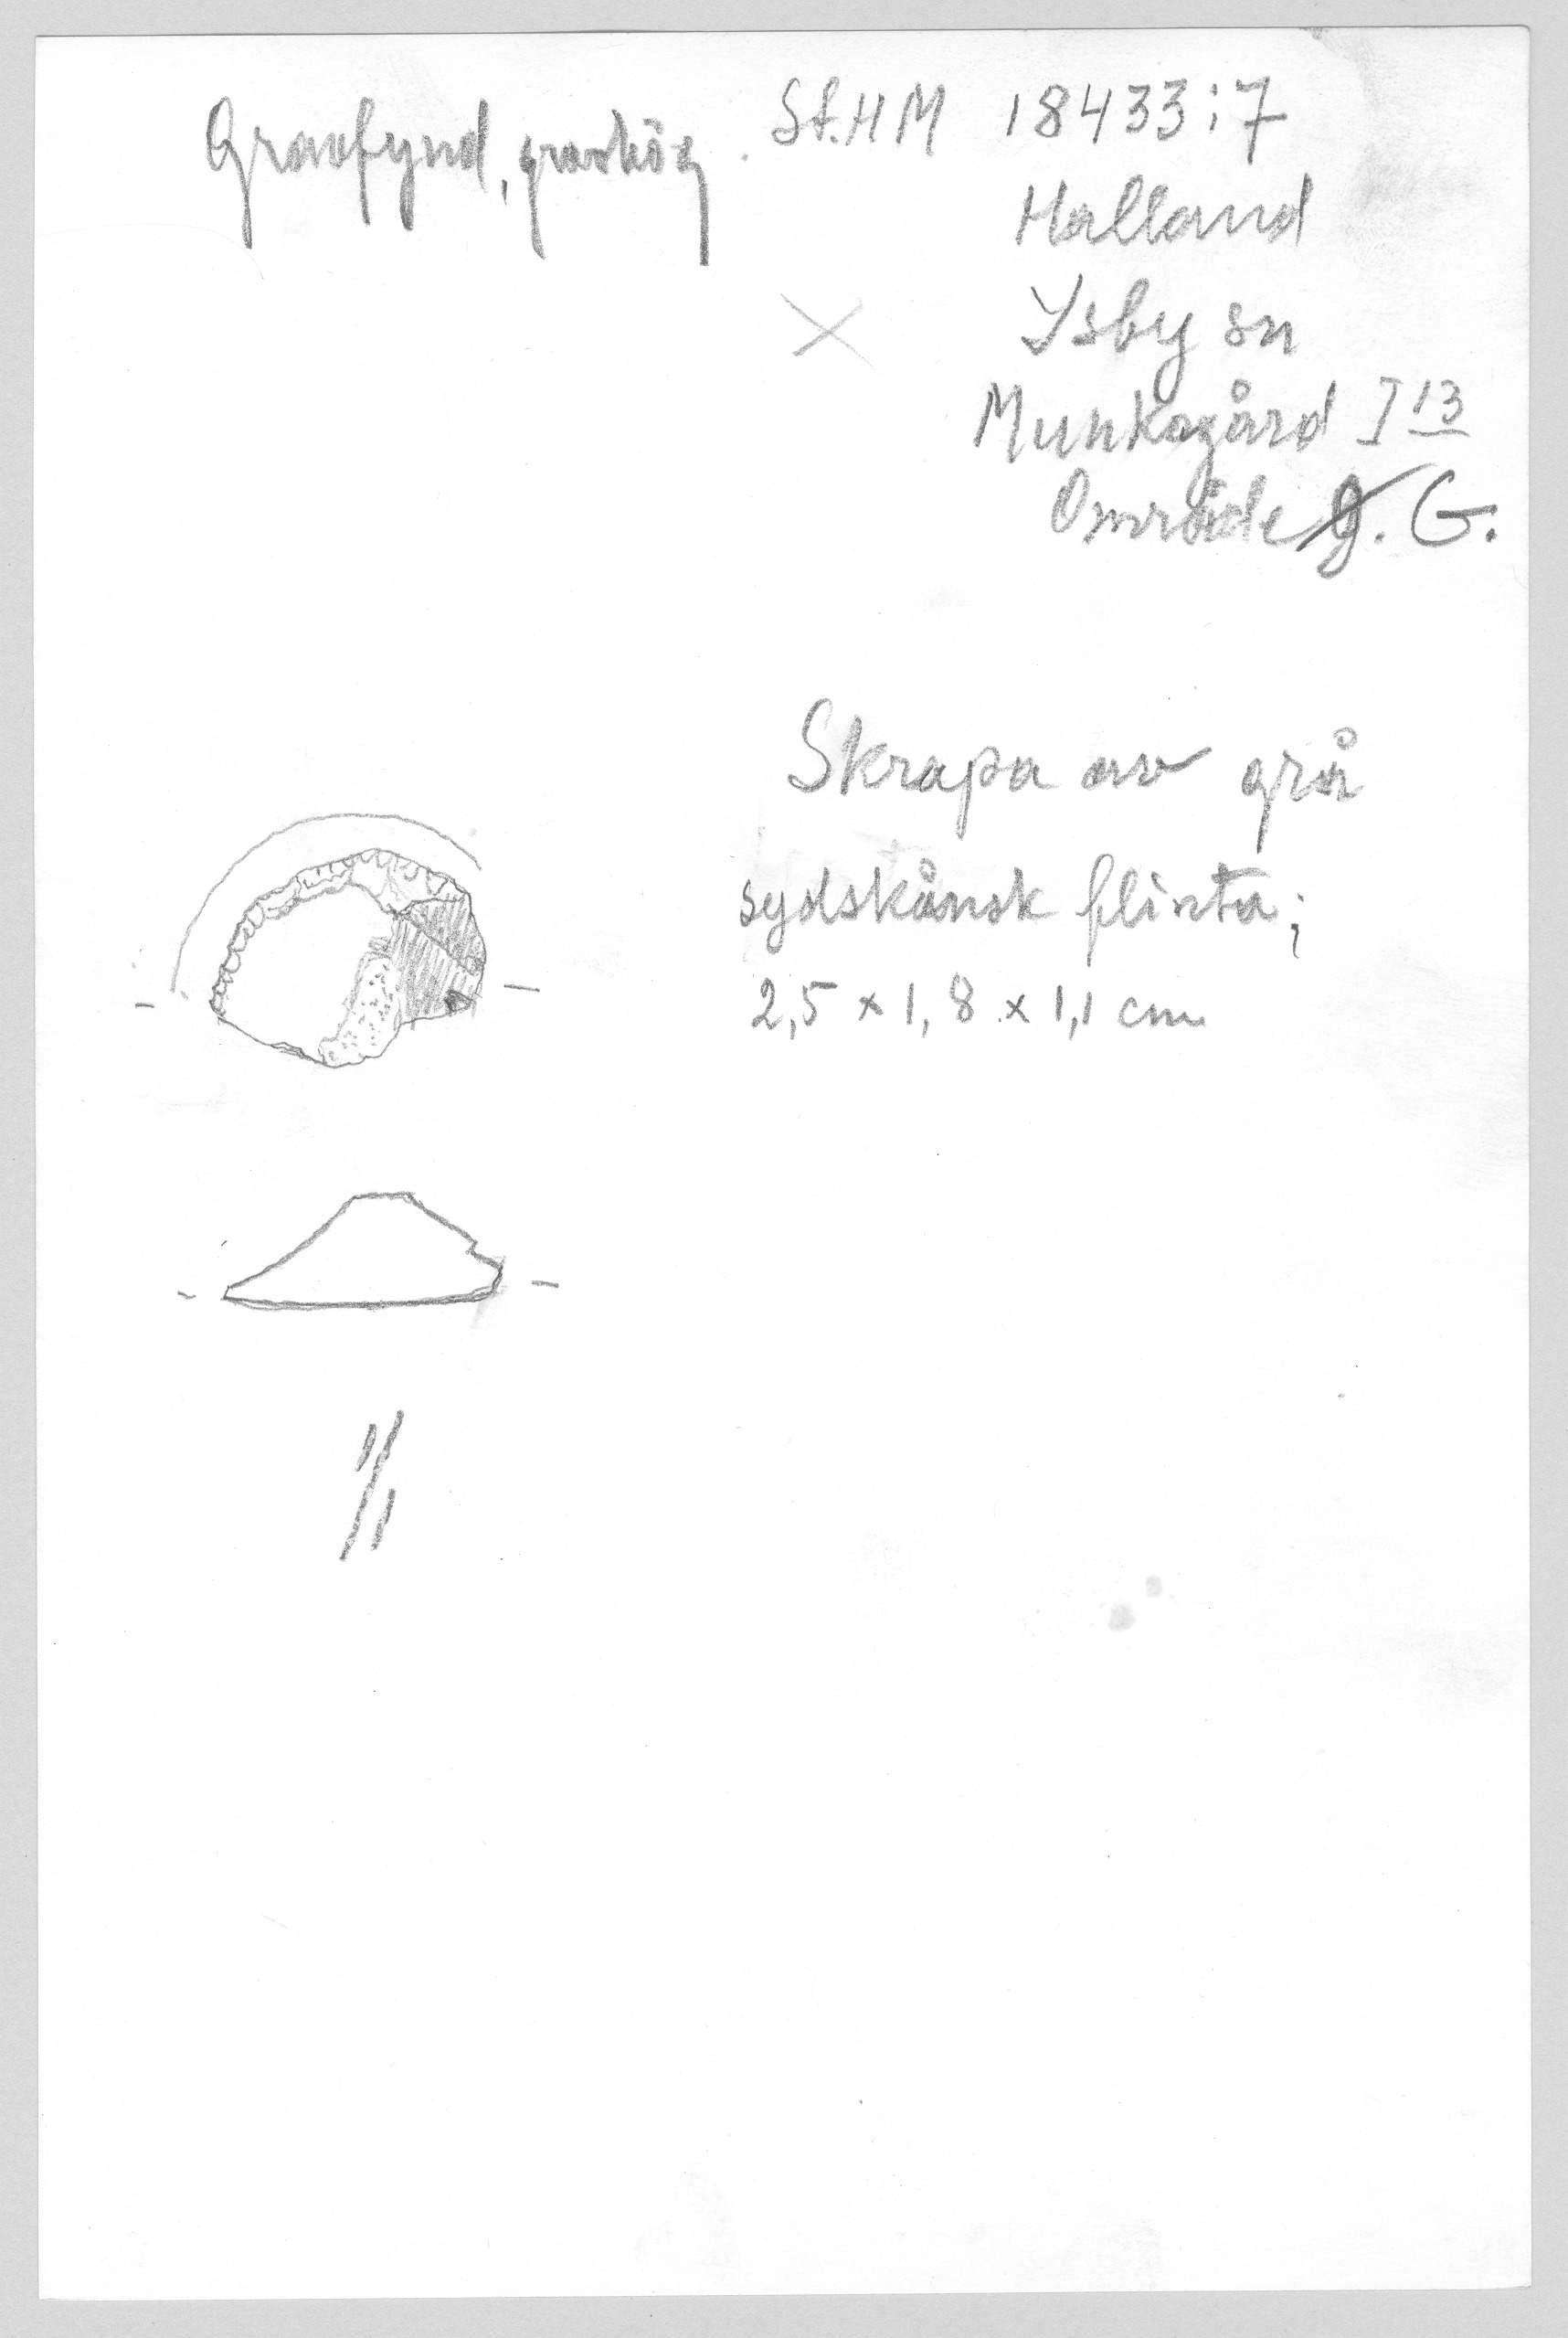 Gravfynd, gravhög. St.HM 18433:7
Halland
Ysby sn
Munkagård I 13
Område G.
Skrapa av grå
sydskånsk flinta;
2,5 x 1,8 x 1,1 cm
1/1